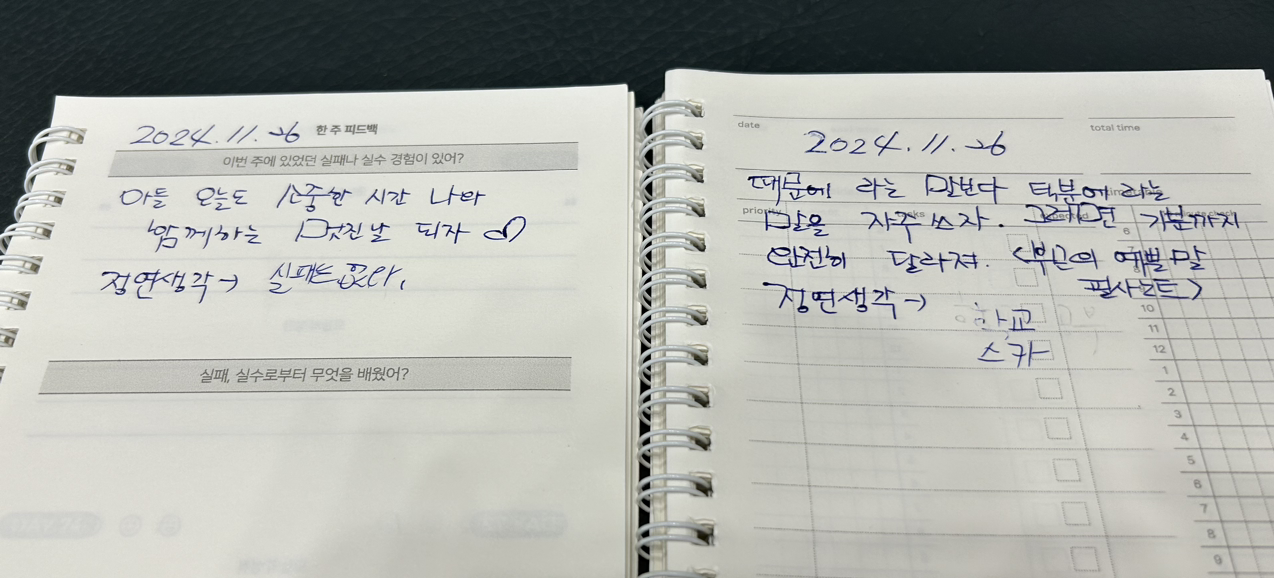 2024.11.26 한 주 피드백
이번 주에 있었던 실패나 실수 경험이 있어?
아들 오늘도 소중한 시간 나와
함께하는 멋진날 되자
정연생각→ 실패는없다.
실패, 실수로부터 무엇을 배웠어?
date
total time
2024.11.26
때문에 라는 말보다 덕분에 라는
priority
tasks
말을 자주 쓰자. 그러면 기분까지
6
완전히 달라져. <부근의 예쁜말
필사노트>
정연생각→
학교
스카
10
11
12
1
2
3
4
5
6
7
8
9